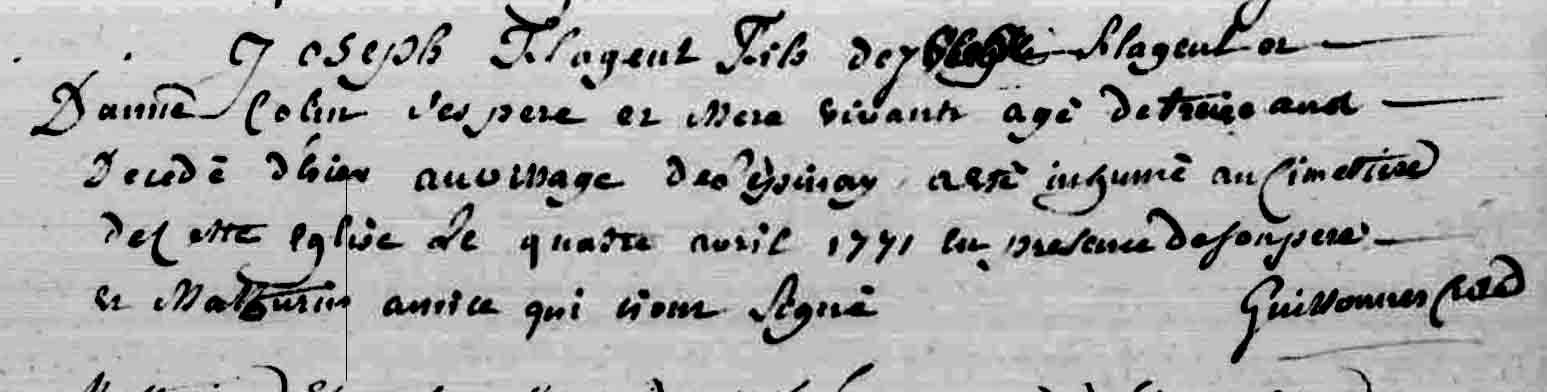 Joseph Flagent Fils de Flagent et
D'anne Colin ses pere et Mere vivants agé de treize ans
Decedé d'hier au village de l'epinay a esté inhumé au Cimetiere
de Cette eglise Le quatre avril 1771 en presence de son pere
et Mathurin amice qui n'ont Signé